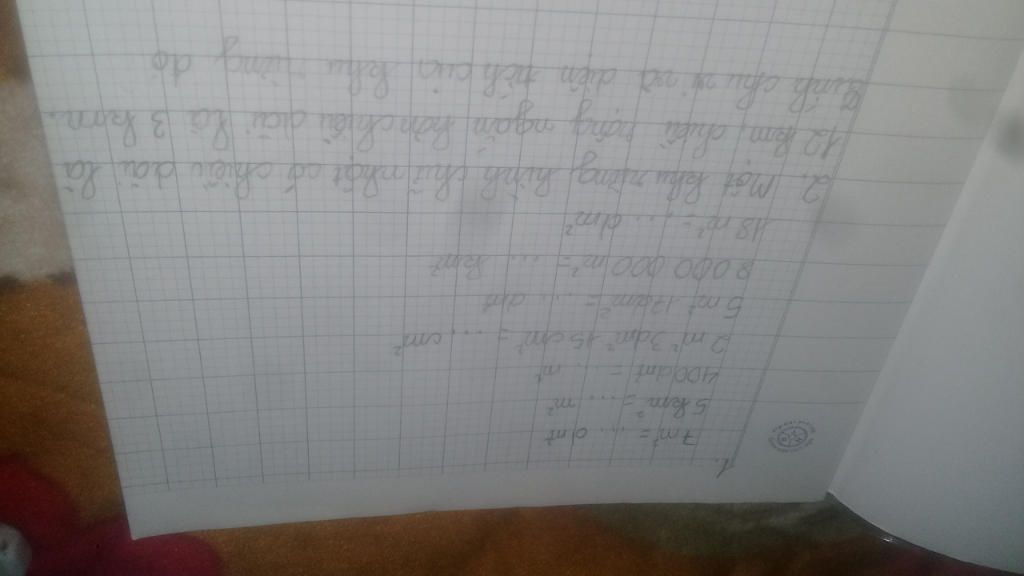 1.
7m² = ... dm²
5km² = ... m²
400dm² = ... m²
2m² 3dm² 15cm² = .... cm²
5m² 17dm² = ... dm²
8 000 000 m² = ... km²
18 m² = ... dm²
2. Một khu rừng hình chữ nhật có chiều dài là
12 km, chiều rộng ngắn hơn chiều dài là 3 km.
Tính chu vi và diện tích của khu rừng đó